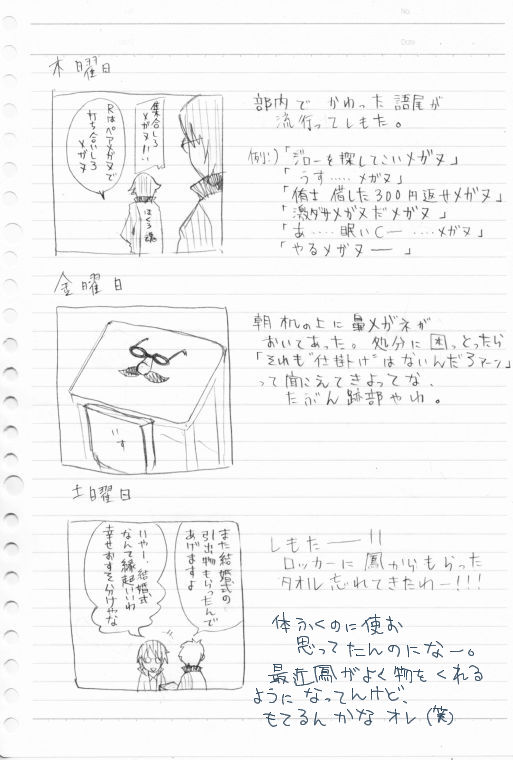 No.
Date
木曜日
集合しろ
メガヌ!!!
Rはペアメガヌで
打ち合いしろ
メガヌ
ほくろ魂
部内で かわった 語尾が
流行ってしもた。
例:)「ジローを探してこいメガヌ」
「うす‥‥メガヌ」
「侑士 借した300円返せメガヌ」
「激ダサメガヌだメガヌ」
「あ‥‥眠いCー‥‥メガヌ」
「やるメガヌー」
金曜日
いす
朝 机の上に 鼻メガネが
おいてあった。処分に 困っとったら
「それも"仕掛け"はないんだろアーン」
って聞こえてきよってな、
たぶん跡部やわ。
土曜日
また結婚式の
引出物もらったんで
あげますよ
いやー、結婚式
なんて縁起いいわ
幸せおすそ分けやな
しもたーー!!
ロッカーに 鳳からもらった
タオル忘れてきたわー!!!
体ふくのに使お
思ってたんのになー。
最近鳳がよく物をくれる
ようになってんけど、
もてるんかな オレ(笑)